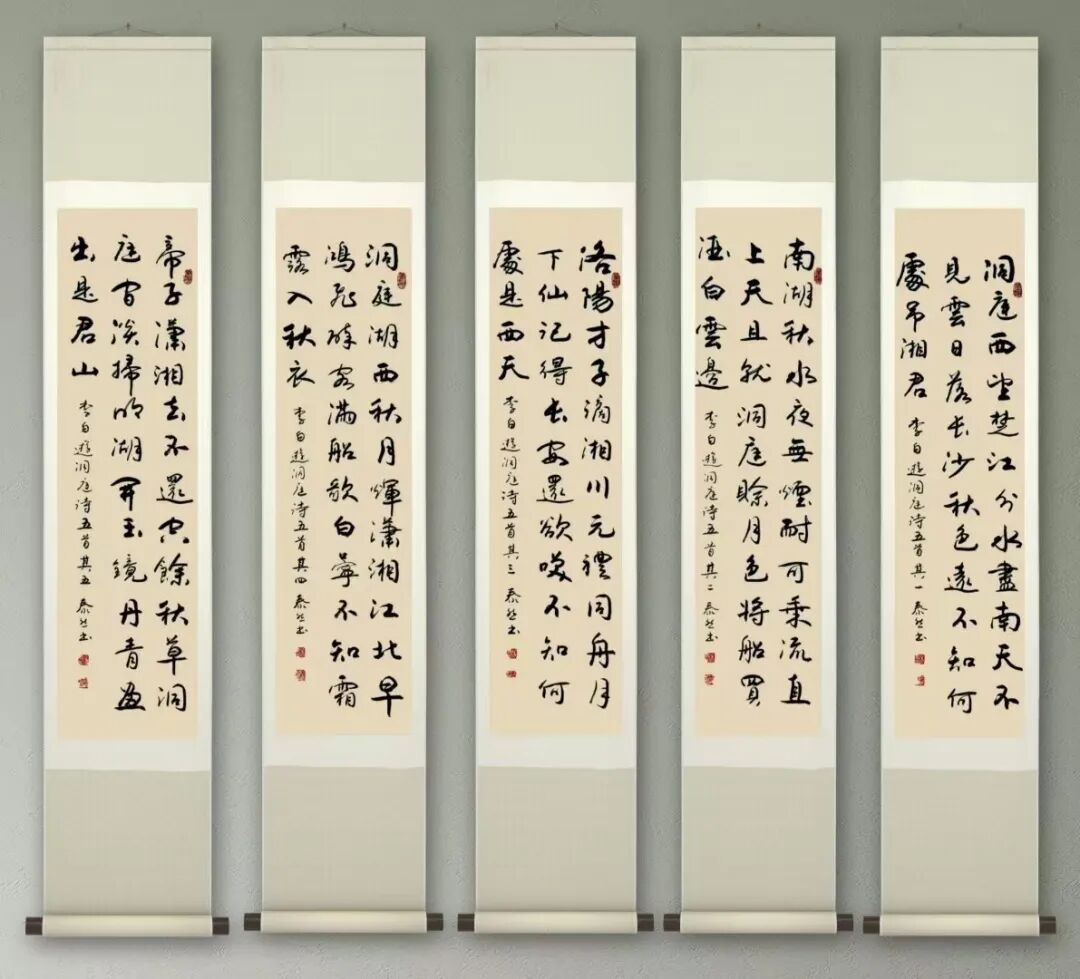 洞庭西望楚江分水盡南天不
見雲日落長沙秋色遠不知何
處吊湘君
李白遊洞庭诗五首其一 泰然书
南湖秋水夜無煙耐可乘流直
上天且就洞庭賒月色將船買
酒白雲邊
李白遊洞庭诗五首其二 泰然书
洛陽才子謫湘川元禮同舟月
下仙記得長安還欲笑不知何
處是西天
李白遊洞庭诗五首其三 泰然书
洞庭湖西秋月煇瀟湘江北早
鴻飛醉客滿船歌白苧不知霜
露入秋衣
李白遊洞庭诗五首其四 泰然书
帝子瀟湘去不還空餘秋草洞
庭間淡掃明湖開玉鏡丹青畫
出是君山
李白遊洞庭诗五首其五 泰然书